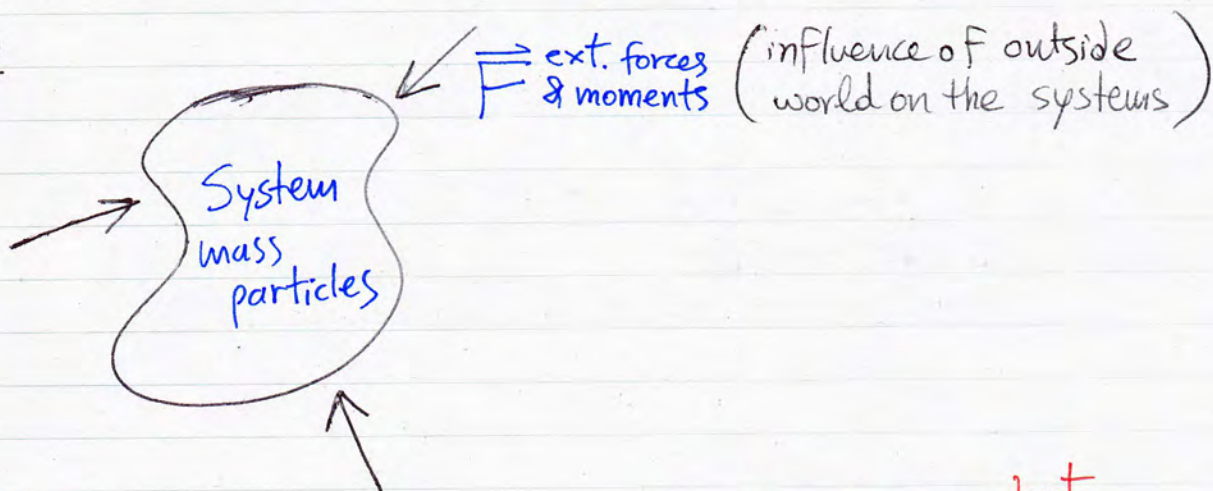 F ext. forces (influence of outside
& moments world on the systems)
System
mass
particles